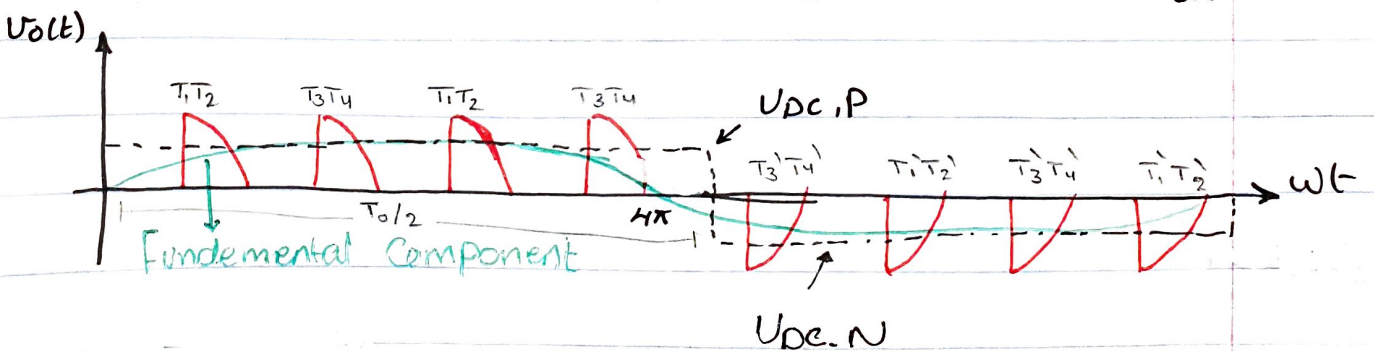 Vo(t)
T1T2 T3T4 T1T2 T3T4
UDC,P
T3'T4' T1'T2' T3'T4' T1'T2'
ωt
To/2
4π
Fundemental Component
UDC.N